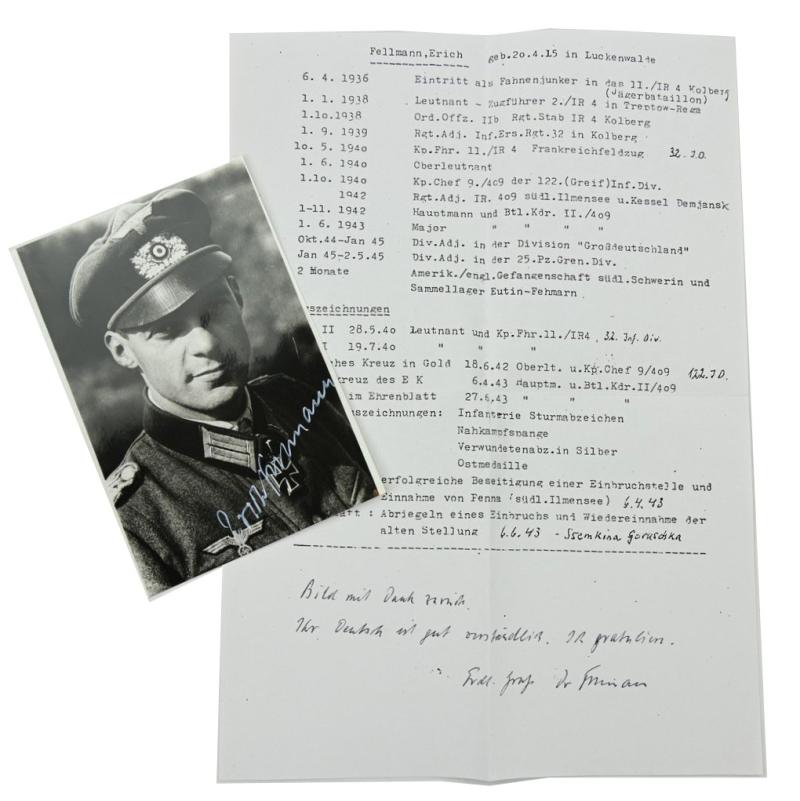 Fellmann,Erich geb.20.4.15 in Luckenwalde
6. 4. 1936 Eintritt als Fahnenjunker in das 11./IR 4 Kolberg
(Jägerbataillon)
1. 1. 1938 Leutnant - Zugführer 2./IR 4 in Treptow-Rega
1.10.1938 Ord.Offz. IIb Rgt.Stab IR 4 Kolberg
1. 9. 1939 Rgt.Adj. Inf.Ers.Rgt.32 in Kolberg
10. 5. 1940 Kp.Fhr. 11./IR 4 Frankreichfeldzug 32. I.D.
1. 6. 1940 Oberleutnant
1.10. 1940 Kp.Chef 9./409 der 122.(Greif)Inf.Div.
1942 Rgt.Adj. IR. 409 südl.Ilmensee u.Kessel Demjansk
1-11. 1942 Hauptmann und Btl.Kdr. II./409
1. 6. 1943 Major " " " "
Okt.44-Jan 45 Div.Adj. in der Division "Großdeutschland"
Jan 45-2.5.45 Div.Adj. in der 25.Pz.Gren.Div.
2 Monate Amerik./engl.Gefangenschaft südl.Schwerin und
Sammellager Eutin-Fehmarn
uszeichnungen
II 28.5.40 Leutnant und Kp.Fhr.11./IR4 , 32. Inf. Div.
I 19.7.40 " " "
hes Kreuz in Gold 18.6.42 Oberlt. u.Kp.Chef 9/409 122. I.D.
kreuz des E K 6.4.43 Hauptm. u.Btl.Kdr.II/409
im Ehrenblatt 27.6.43 " " "
uszeichnungen: Infanterie Sturmabzeichen
Nahkampfspange
Verwundetenabz.in Silber
Ostmedaille
erfolgreiche Beseitigung einer Einbruchstelle und
Einnahme von Penna (südl.Ilmensee) 6.4.43
aft : Abriegeln eines Einbruchs und Wiedereinnahme der
alten Stellung 6.6.43 - Ssemkina Goruschka
Bild mit Dank zurück.
Ihr Deutsch ist gut verständlich. Ich gratuliere.